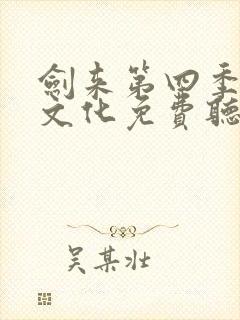 劍来第四季
文化免費聽
吴某壮